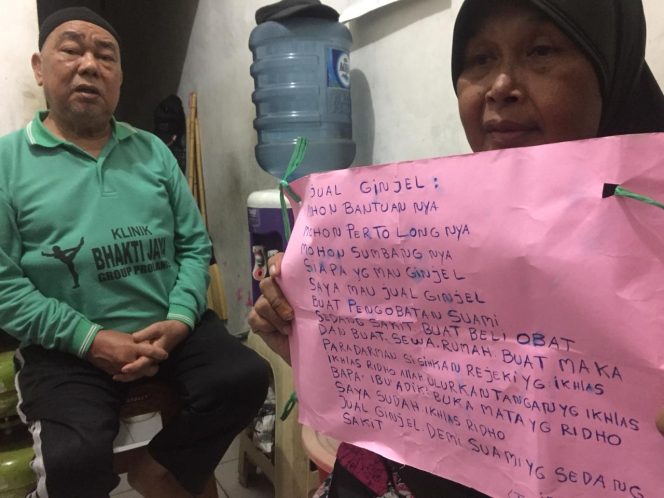 KLINIK
BHAKTI JAYA
JUAL GINJEL:
MOHON BANTUAN NYA
MOHON PERTOLONG NYA
MOHON SUMBANG NYA
SIAPA YG MAU GINJEL
SAYA MAU JUAL GINJEL
BUAT PENGOBATAN SUAMI
SEDANG SAKIT. BUAT BELI OBAT
DAN BUAT. SEWA. RUMAH. BUAT MAKA
PARADARMAN SISIHKAN REJEKI YG IKHLAS
IKHLAS RIDHO ALLAH ULURKAN TANGAN YG IKHLAS
BAPA. IBU ADIK. BUKA MATA YG RIDHO
SAYA SUDAH IKHLAS RIDHO
JUAL GINJEL. DEMI SUAMI YG SEDANG
SAKIT